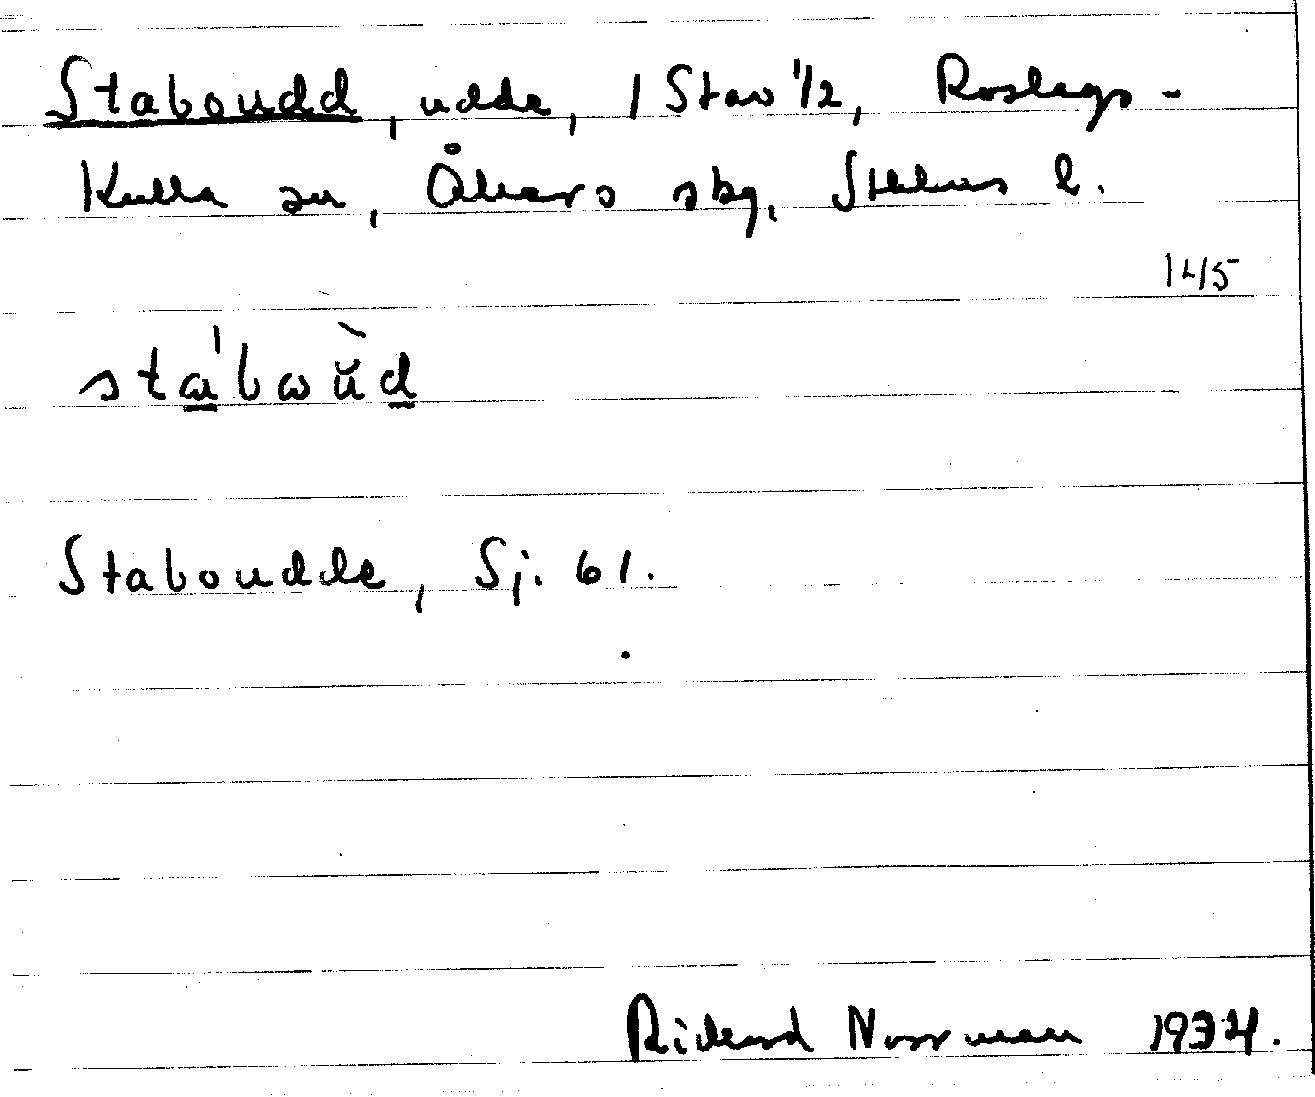 Staboudd, udde, 1 Stav 1/2, Roslags-
Kulla sn, Åkers skg, Sthlms l.
145
stábωŭ̀d
Staboudde, Sj. 61.
Rickard Norrman 1934.